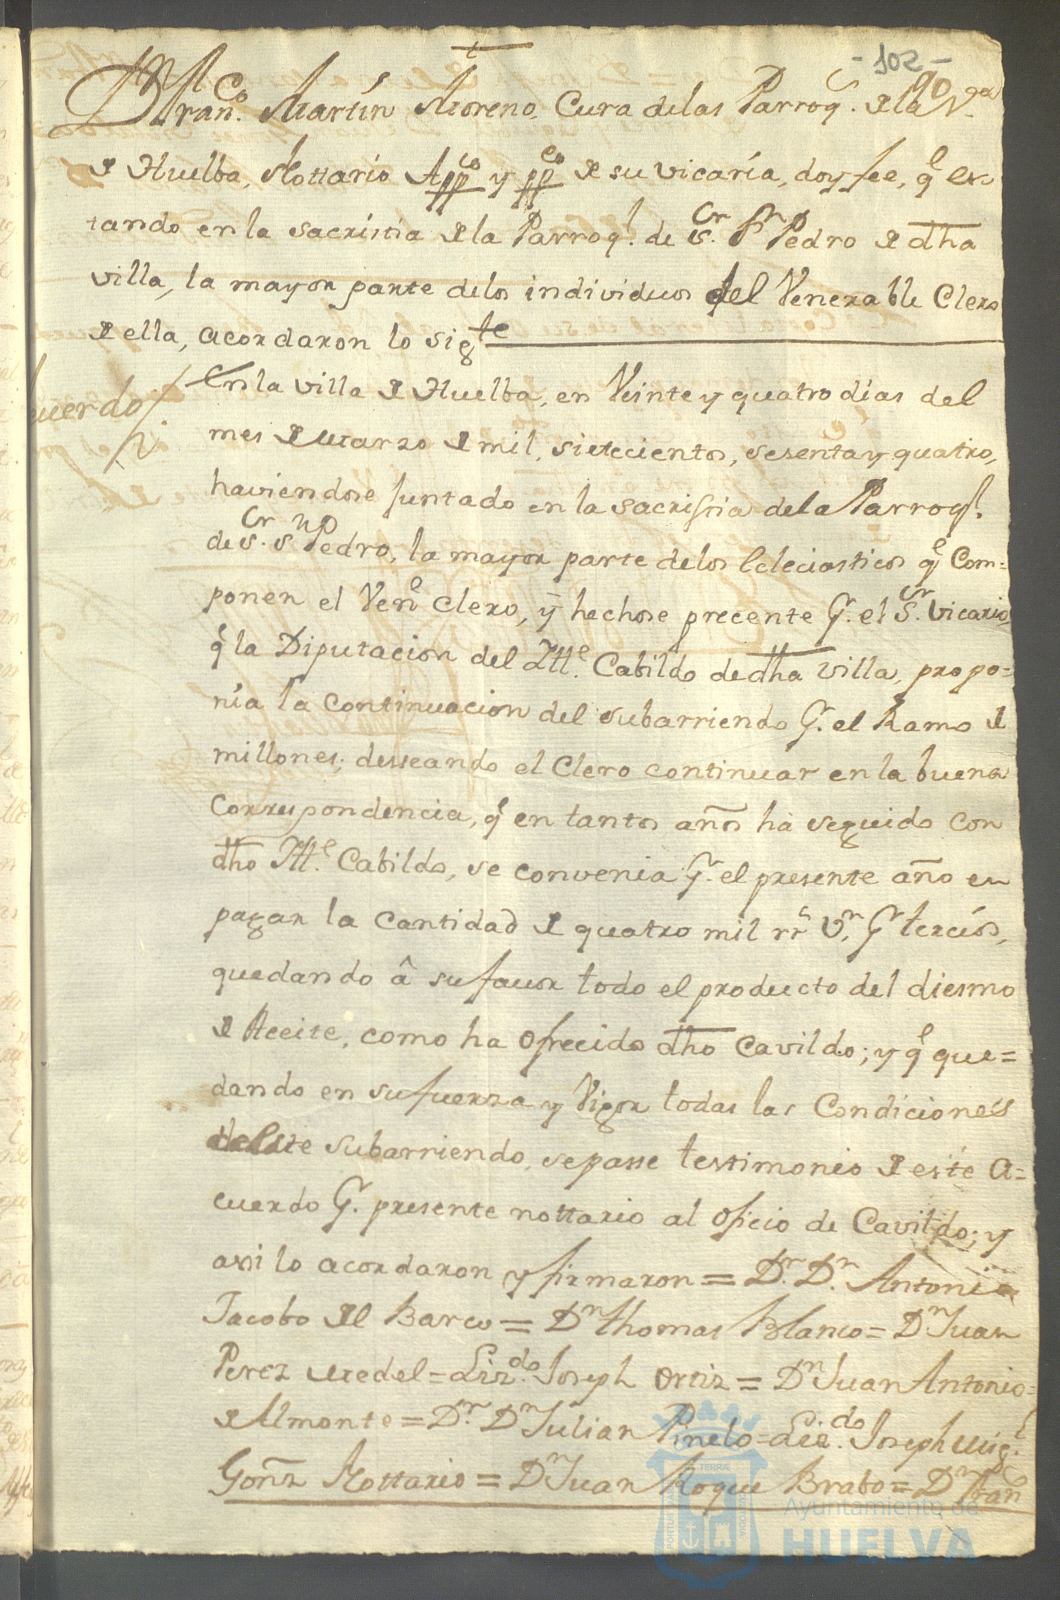 -102-
90
Dn Franco. Martín Moreno, Cura de las Parroqs. de la Va.
de Huelba, Nottario Appco y ppco de su vicaría, doy fee, q es-
tando en la sacristia de la Parroql. de Sr. Sn Pedro de dha
villa, la mayor parte delos individuos del Venerable Clero
de ella, acordaron lo sigte
uerdo
En la villa de Huelba, en Veinte y quatro días del
mes de Marzo de mil, sietecientos, sesenta y quatro,
haviendose juntado en la sacristia de la Parroql.
de Sr. Sn Pedro, la mayor parte delos Ecleciasticos q Com=
ponen el Vene Clero, y hechose precente Pr. el Sr. Vicario
q la Diputacion del Ille. Cabildo de dha villa, propo=
nia la continuacion del subarriendo Pr. el Ramo de
millones; desseando el Clero continuar en la buena
Correspondencia, q en tantos años ha seguido con
dho Ille. Cabildo, se convenia Pr. el presente año en
pagar la cantidad de quatro mil rrs Vn. Pr tercios,
quedando â su favor todo el producto del diesmo
de Aceite, como ha ofrecido dho Cavildo; y q que=
dando en su fuerza y Vigor todas las Condiciones
deeste subarriendo, se passe testimonio de este A=
cuerdo Pr. presente nottario al oficio de Cavildo; y
assi lo acordaron y firmaron = Dr. Dn. Antonio
Jacobo del Barco = Dn Thomas Blanco = Dn Juan
Perez Medel = Lizdo. Joseph Ortiz = Dn Juan Antonio
de Almonte = Dr. Dn Julian Pinelo = Licdo. Joseph Migl.
Gonz Nottario = Dn Juan Roque Brabo = Dn Franco
Ayuntamiento de
HUELVA